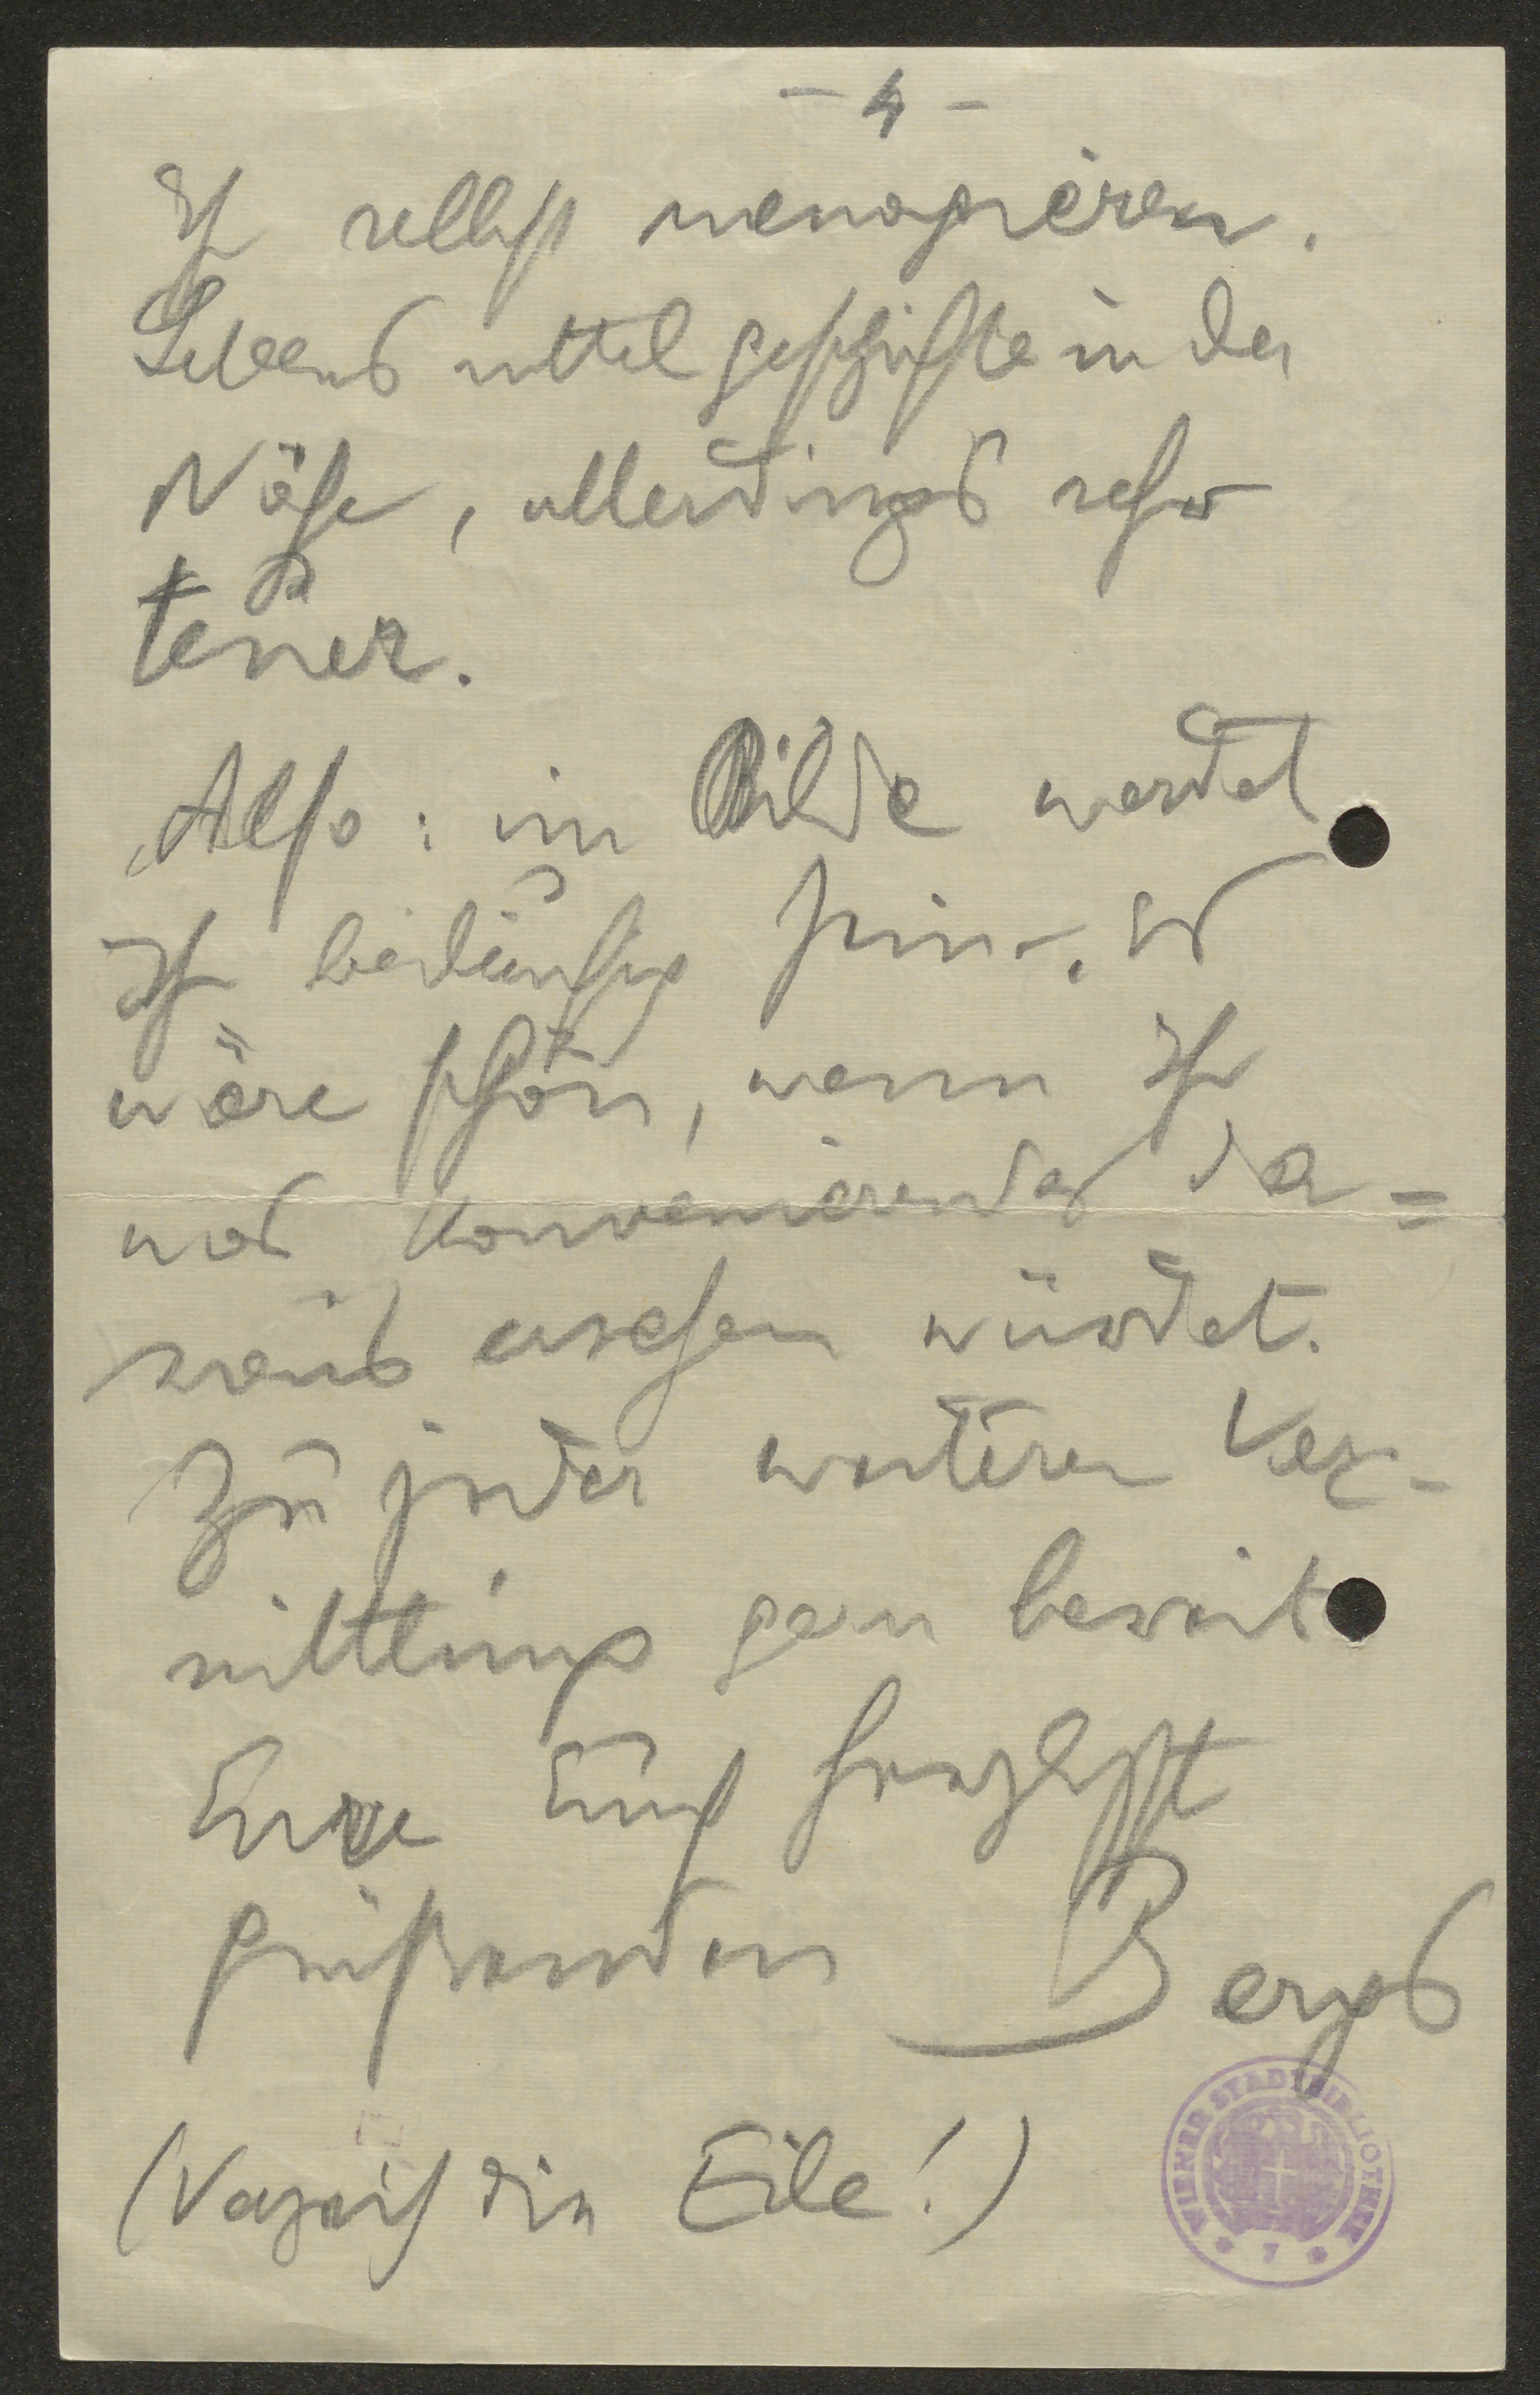 – 4 –
Ihr selbst menagieren.
Lebensmittelgeschäfte in der
Nähe, allerdings sehr
teuer.
Also: im Bilde werdet
Ihr beiläufig sein. Es
wäre schön, wenn Ihr
was konvenierendes da=
raus ersehen würdet.
Zu jeder weiteren Ver-
mittlung gern bereit
Eure Euch herzlichst
grüßenden Bergs
(Verzeih die Eile!)
WIENER STADTBIBLIOTHEK
* 7 *